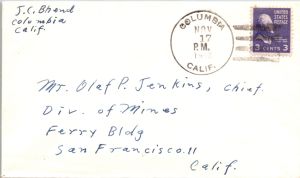 J.C. Brend
Columbia
Calif.
COLUMBIA
NOV
17
P.M.
CALIF.
3 CENTS 3
Mr. Olaf P. Jenkins, Chief.
Div. of Mines
Ferry Bldg
San Francisco 11
Calif.